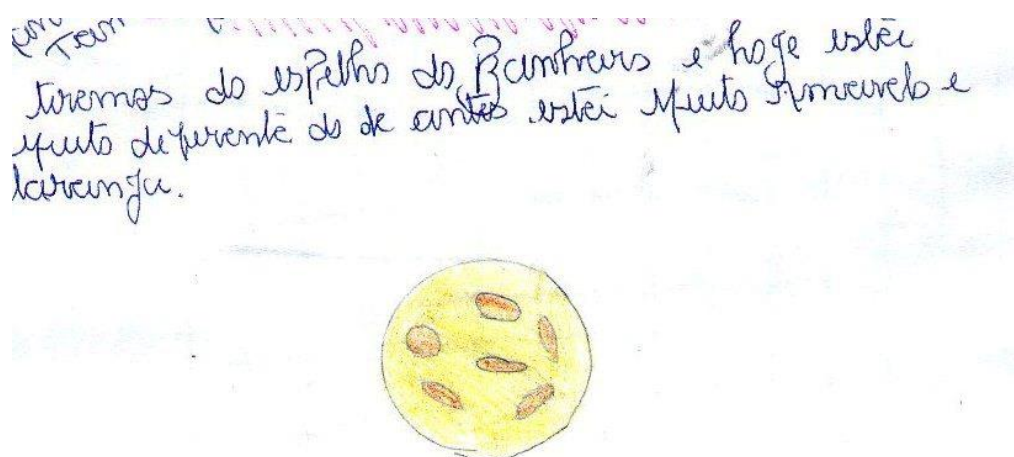 tiremos do espelho do Banheiro e hoge estéi
muito diferente do de antes estéi Muito Amarelo e
laranja.